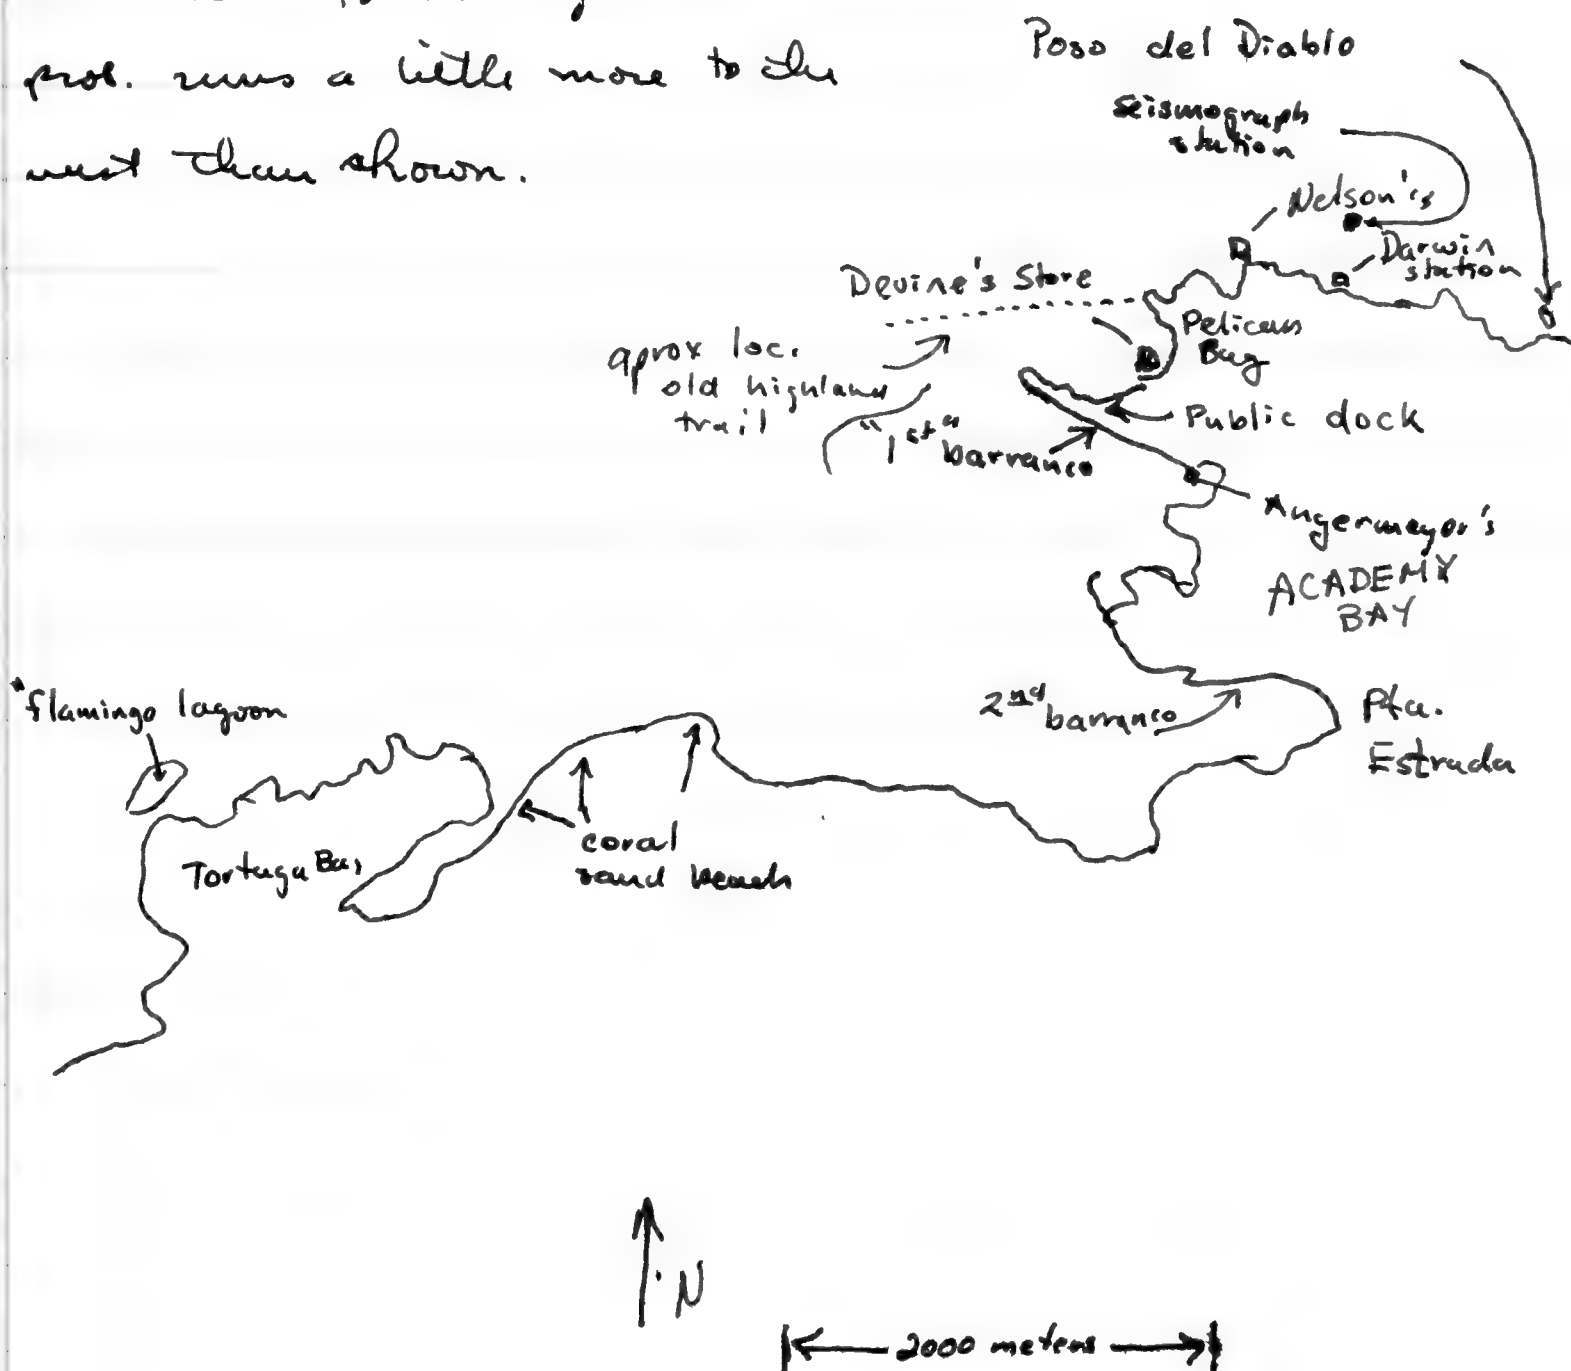 prob. runs a little more to the
west than shown.
Poso del Diablo
Seismograph
station
Nelson's
Darwin
station
Devine's Store
Pelican
Bay
aprox loc.
old highland
trail
Public dock
"1st"
barranco
Angermeyer's
ACADEMY
BAY
2nd
barranco
Pta.
Estrada
flamingo lagoon
Tortuga Bay
coral
sand beach
N
2000 meters